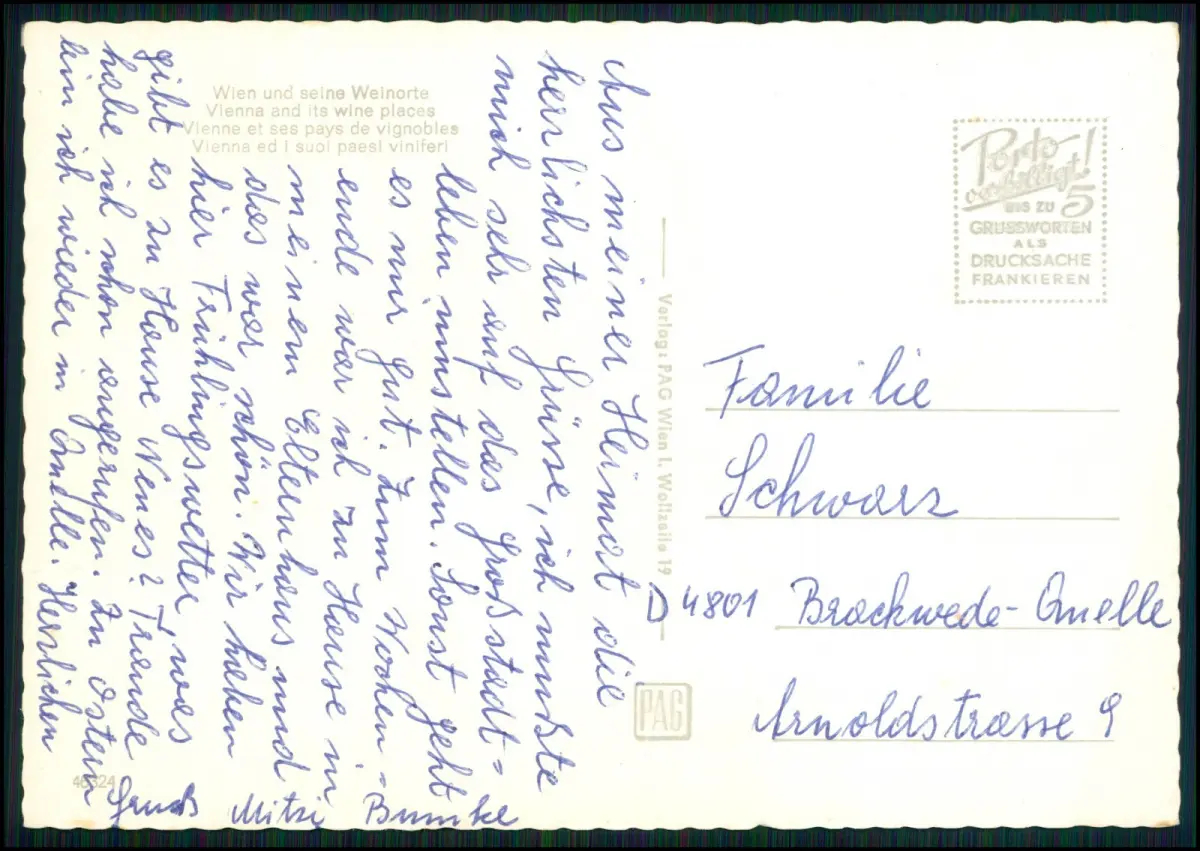 Wien und seine Weinorte
Vienna and its wine places
Vienne et ses pays de vignobles
Vienna ed i suoi paesi viniferi
Aus meiner Heimat die
herrlichsten Grüsse, ich mußte
mich sehr auf das Großstadt=
leben umstellen. Sonst geht
es mir gut. Zum Wochen=
ende war ich zu Hause in
meinem Elternhaus und
das war schön. Wir haben
hier Frühlingswetter, was
gibt es zu Hause Neues? Traude
habe ich schon angerufen. Zu Ostern
bin ich wieder in Quelle. Herzlichen
Gruß Mitzi Bumke
46324
Verlag: PAG Wien I. Wollzeile 19
PAG
Porto
verbilligt!
BIS ZU 5
GRUSSWORTEN
ALS
DRUCKSACHE
FRANKIEREN
Familie
Schwarz
D 4801 Brackwede-Quelle
Arnoldstrasse 9